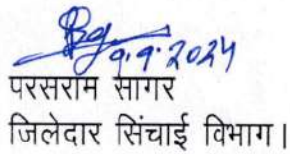 9.9.2024
परसराम सागर
जिलेदार सिंचाई विभाग।